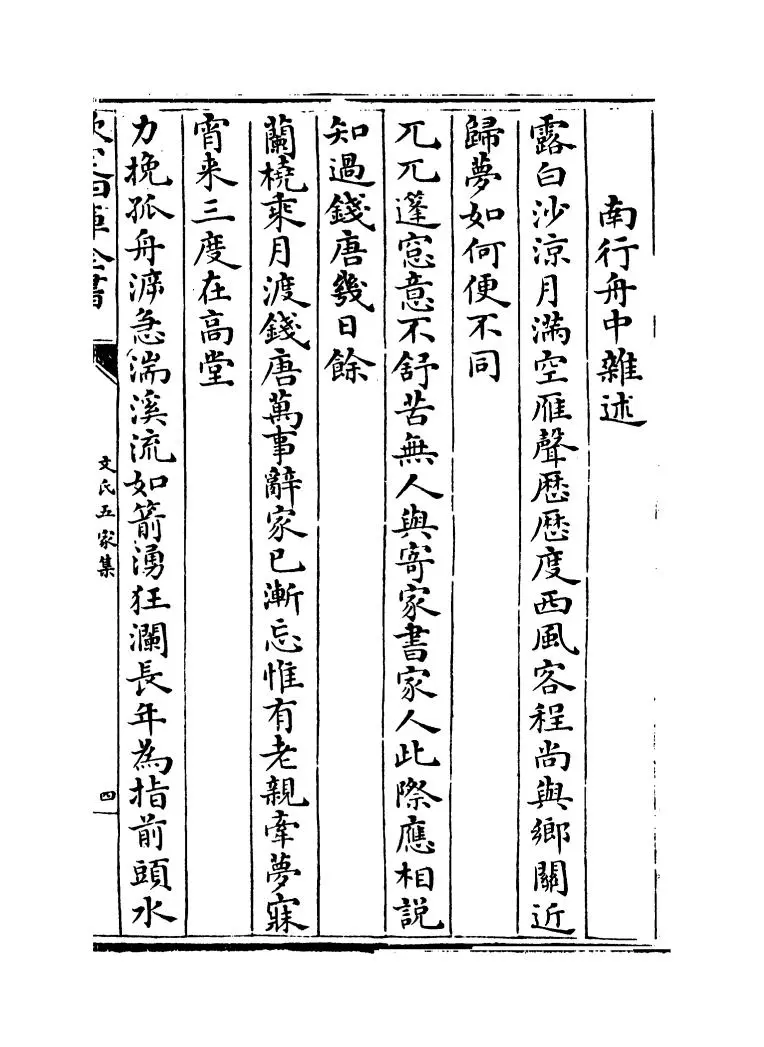 南行舟中雜述
露白沙涼月滿空雁聲歴歴度西風客程尚與鄉關近
歸夢如何便不同
兀兀蓬窓意不舒苦無人與寄家書家人此際應相説
知過錢唐幾日餘
蘭橈乘月渡錢唐萬事辭家已漸忘惟有老親牽夢寐
宵来三度在高堂
力挽孤舟泝急湍溪流如箭湧狂瀾長年為指前頭水
欽定四庫全書
文氏五家集
四